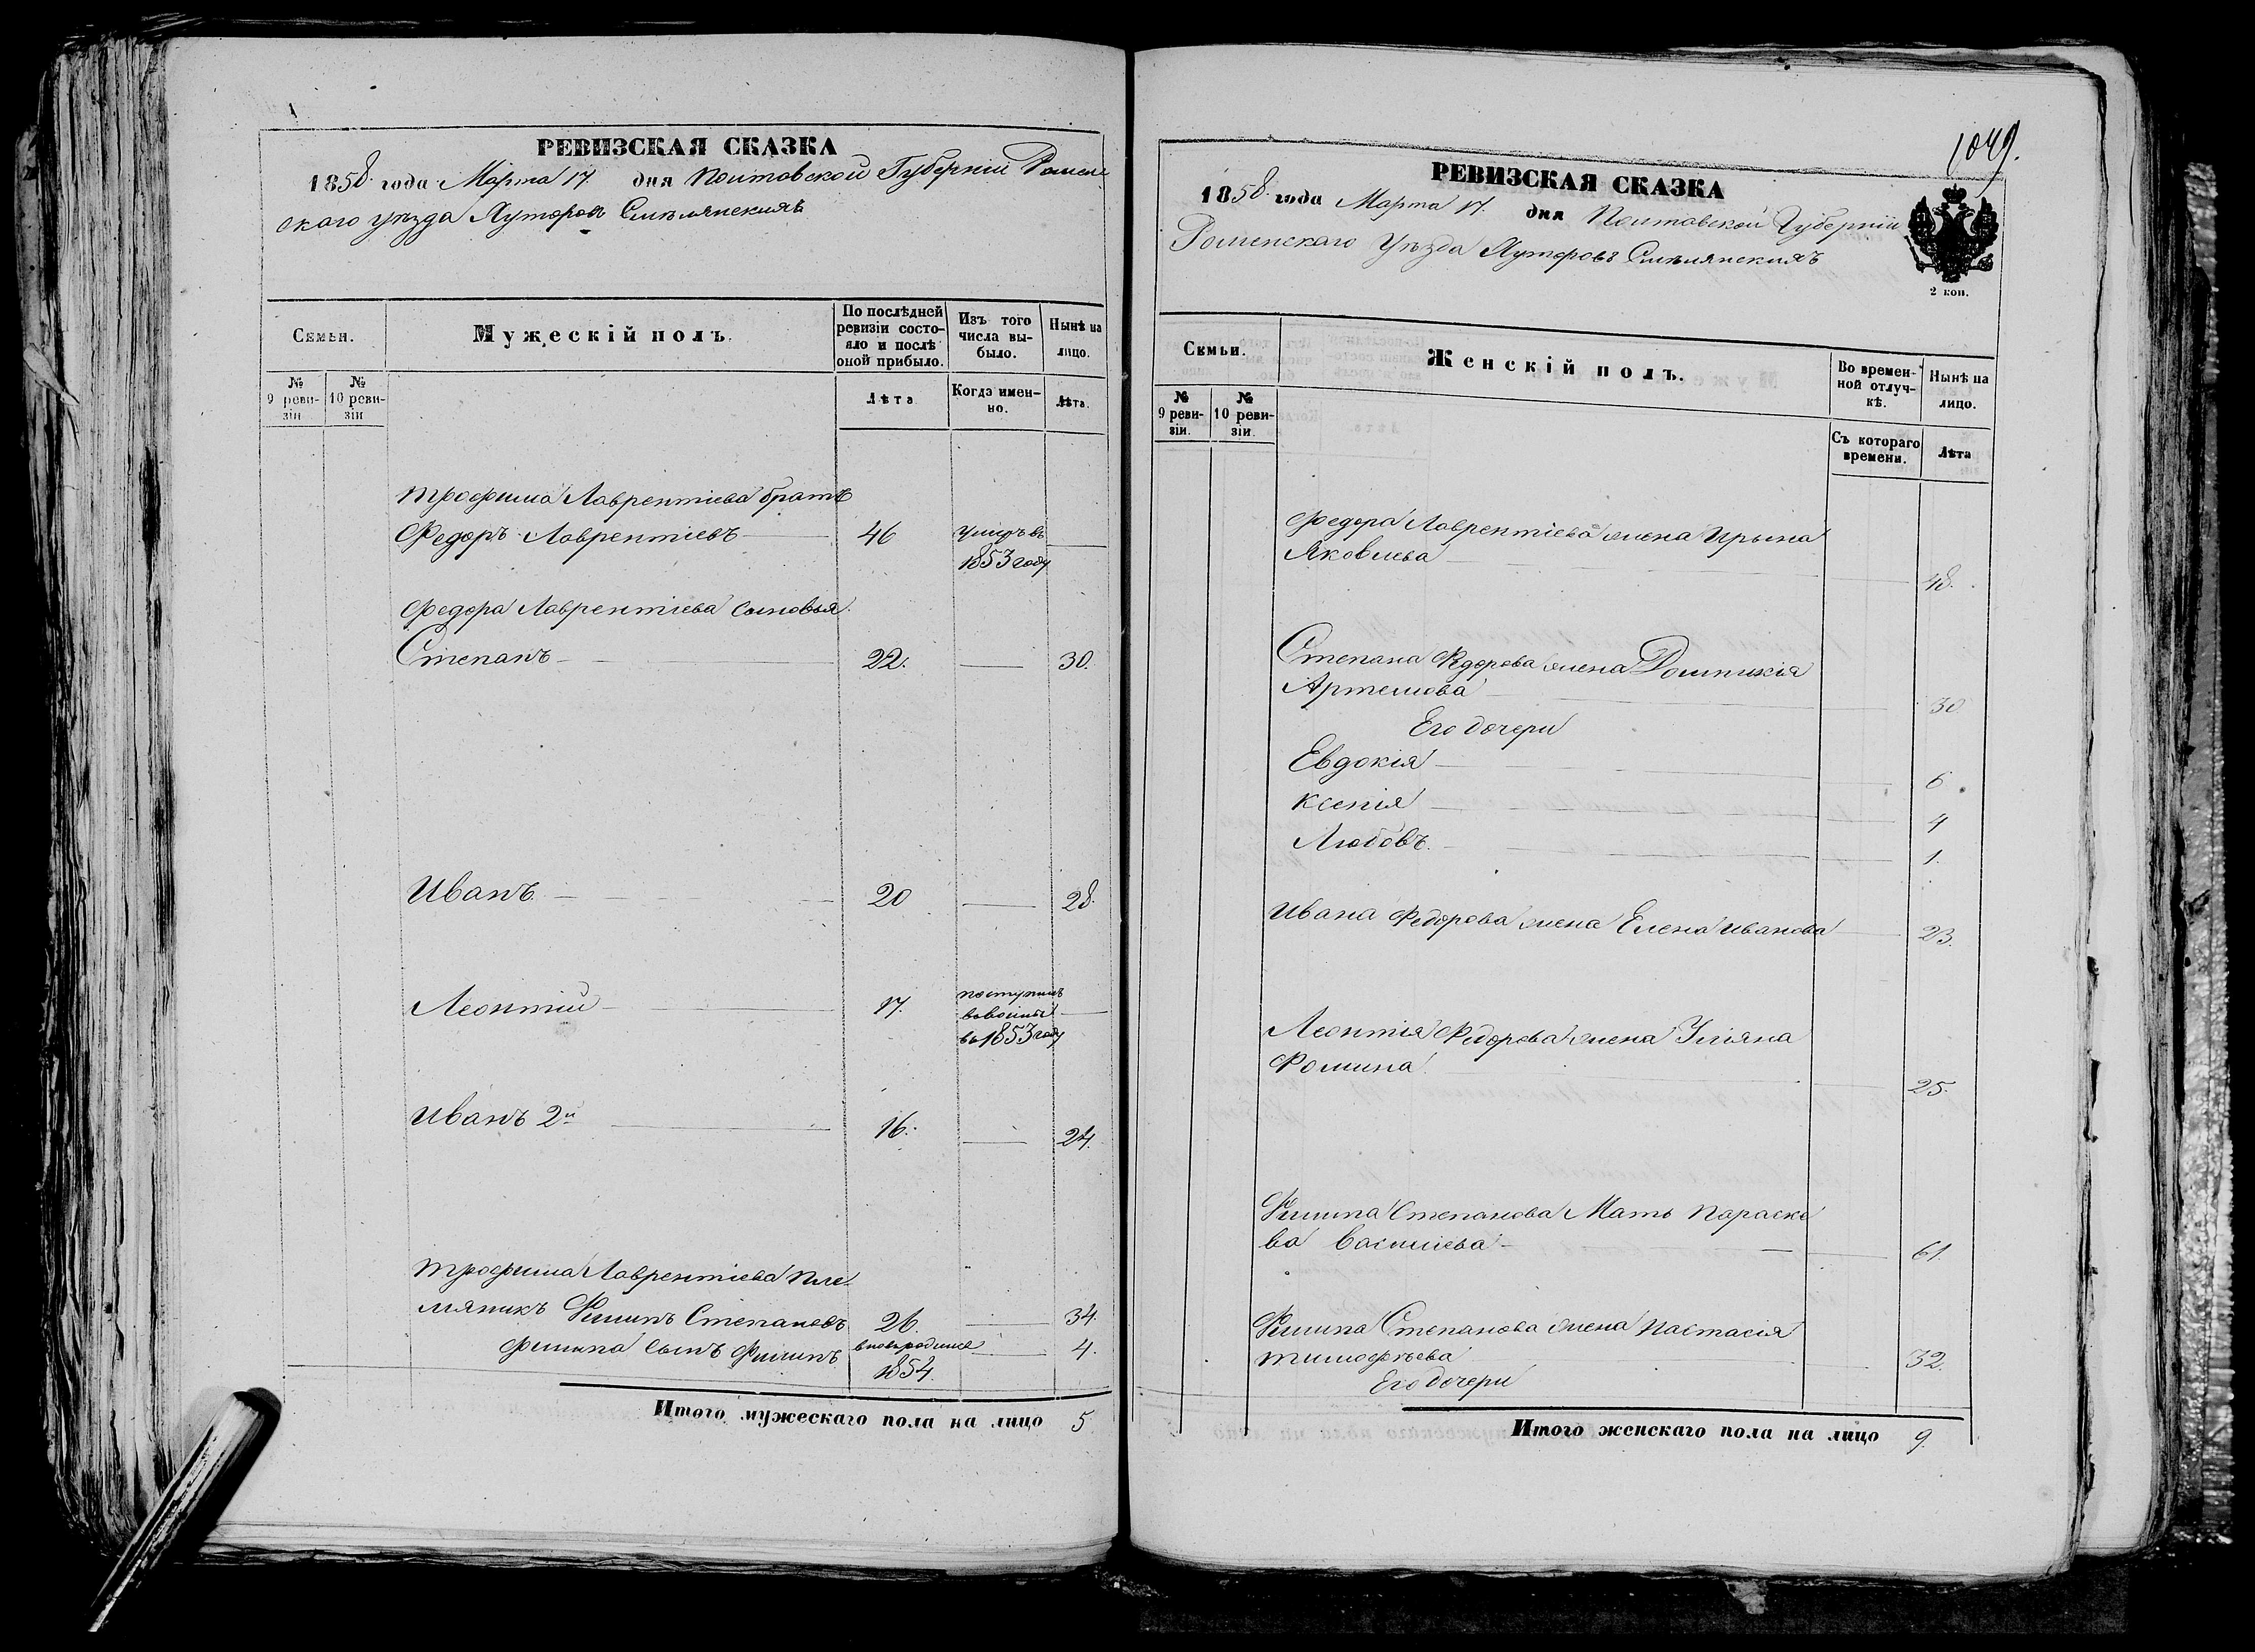 РЕВИЗСКАЯ СКАЗКА
1858 года Марта 17. дня Полтавской Губерніи Ромен
скаго уѣзда Хуторовъ Смѣлянскихъ
Семьи.
Мужескій полъ.
По послѣдней
ревизіи состо-
яло и послѣ
оной прибыло.
Изъ того
числа вы-
было.
Нынѣ на
лицо.
№
9 реви-
зіи
№
10 реви-
зіи
Лѣта
Когда имен-
но.
Лѣта.
Трофима Лаврентіева братъ
Федоръ Лаврентіевъ 46 умеръ въ
1853 году
Федора Лаврентіева сыновья
Степанъ 22. 30.
Иванъ 20 28.
Леонтій 17. поступилъ
въ 1853 году
Иванъ 2й 16. 24.
Трофима Лаврентіева пле
мяникъ Филипъ Степановъ 26. 34.
Филипа сынъ Филипъ 4.
1854.
Итого мужескаго пола на лицо 5
1049.
РЕВИЗСКАЯ СКАЗКА
1858 года Марта 17. дня Полтавской Губерніи
Роменскаго Уѣзда Хуторовъ Смѣлянскихъ
2 коп.
Семьи.
Женскій полъ.
Во времен-
ной отлуч-
кѣ.
Нынѣ на
лицо.
№
9 реви-
зіи.
№
10 реви-
зіи.
Съ котораго
времени.
Лѣта
Федора Лаврентіева жена Ирына
Яковлева 48.
Степана Федорова жена Домникія
Артемова 30
Его дочери
Евдокія 6
Ксенія 4
Любовъ. 1.
Ивана Федорова жена Елена Иванова 23.
Леонтія Федорова жена Уліяна
Фомина 25.
Филипа Степанова Мать Параске
ва Василіева 61.
Филипа Степанова жена Настасія
Тимофѣева 32.
Его дочери
Итого женскаго пола на лицо 9.